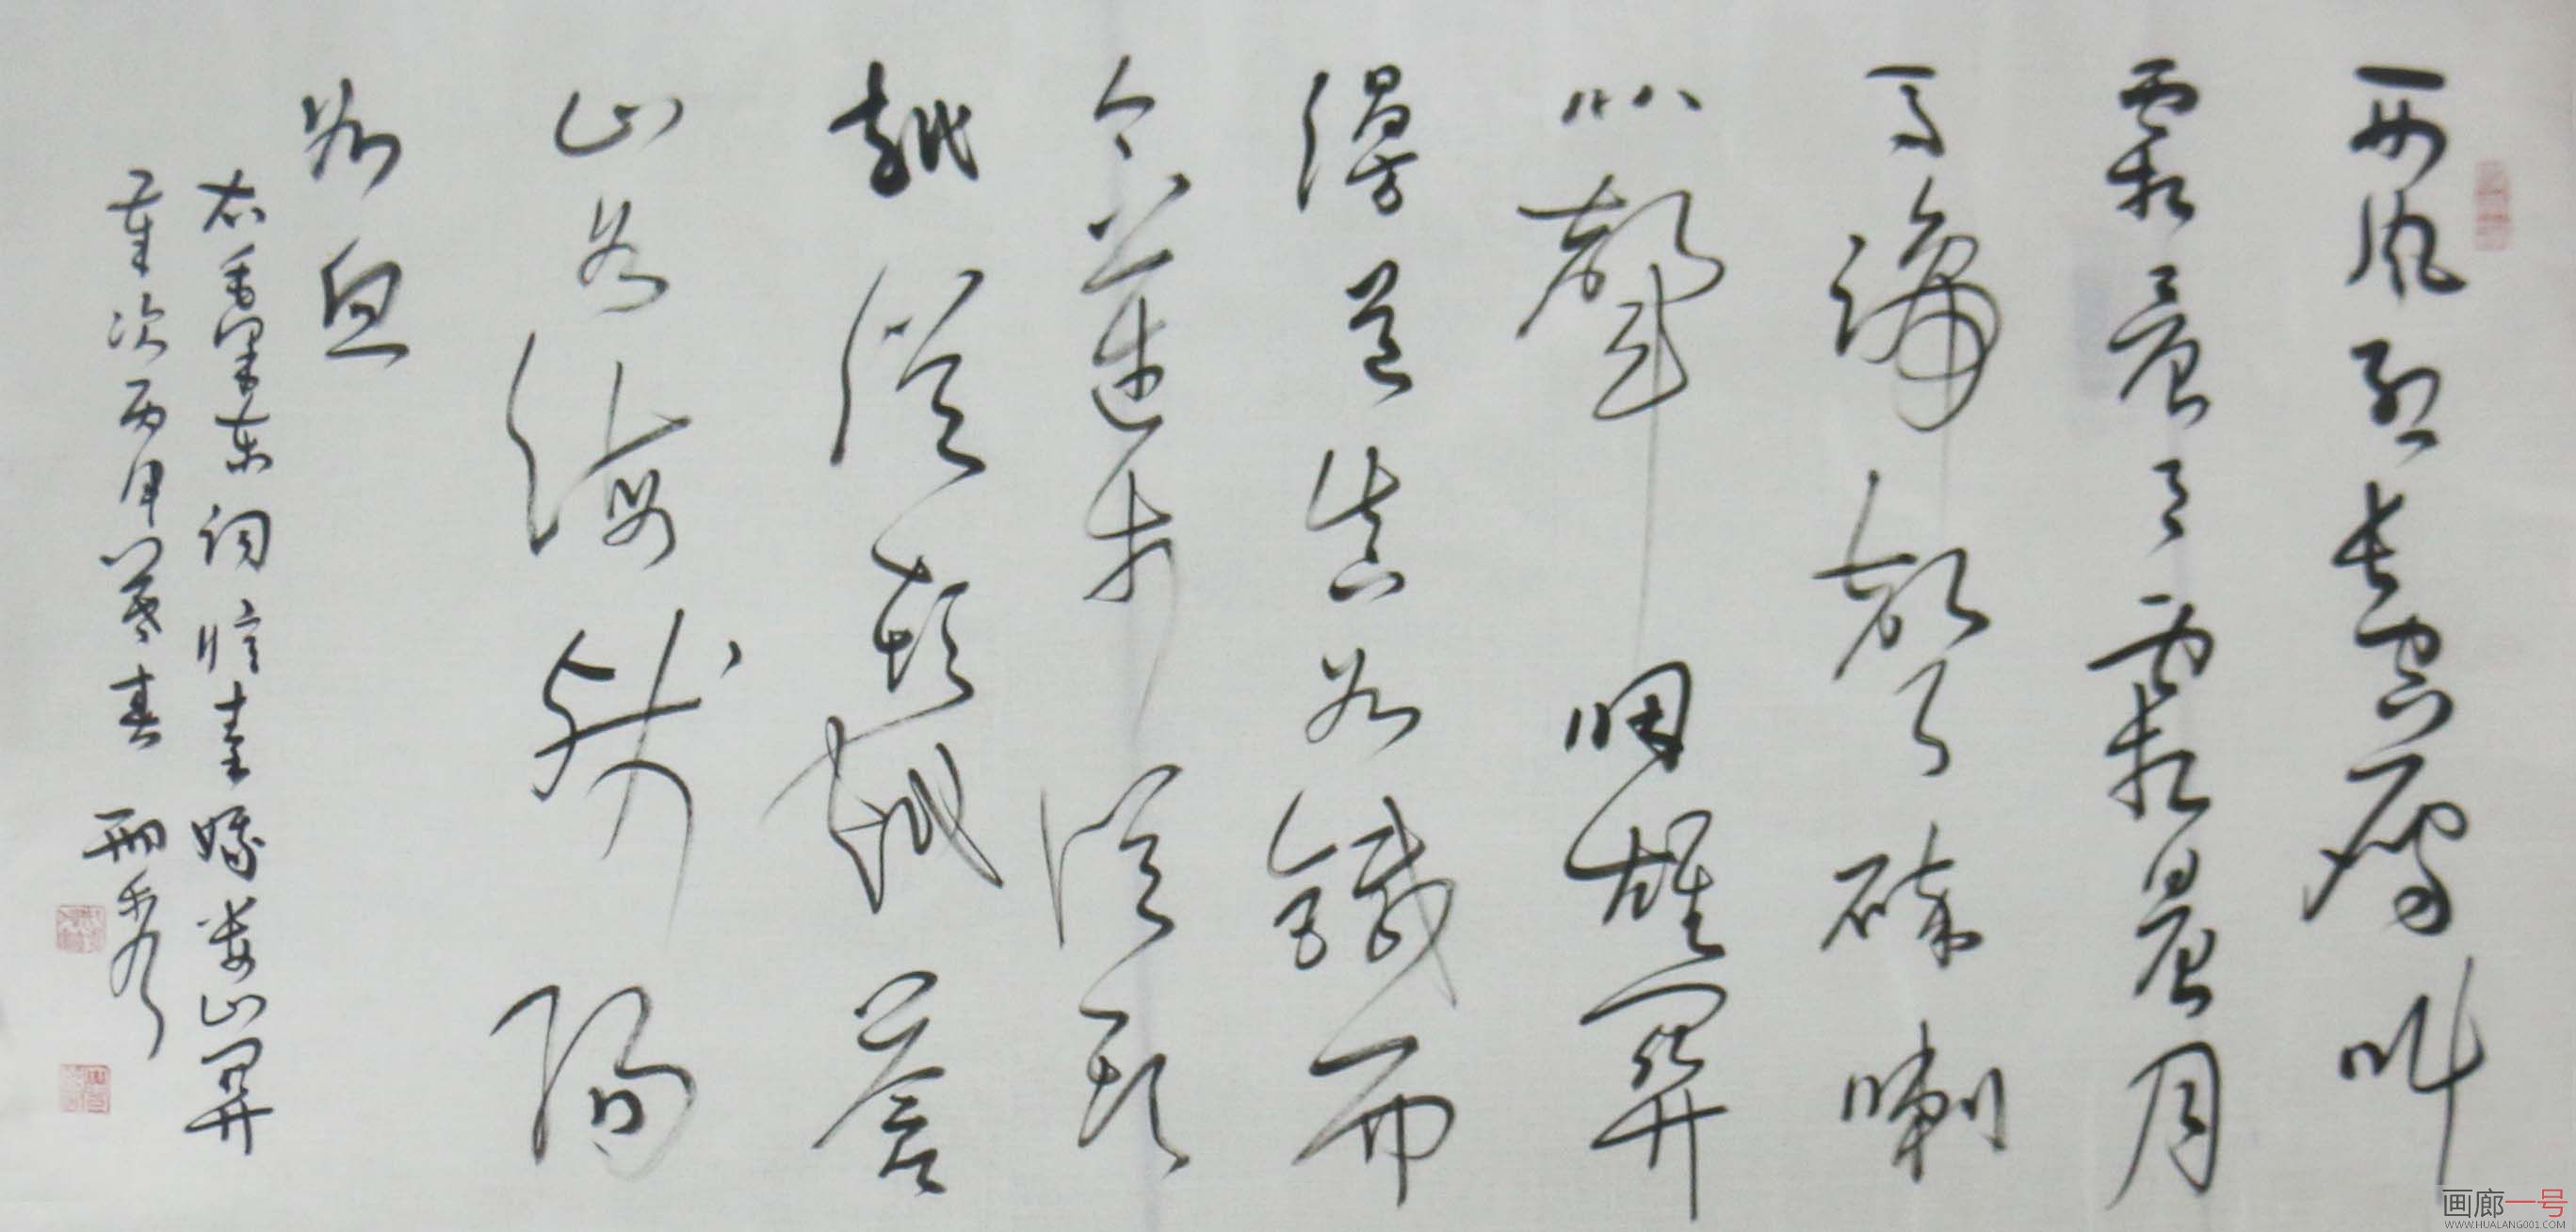 西风烈长空雁叫
霜晨月霜晨月
马蹄声碎喇
叭聲咽雄関
漫道真如鐵而
今迈步従头
越従头越苍
山如海残阳
如血
右毛泽东词忆秦娥娄山関
岁次丙申暮春 邢秀
画廊一号
WWW.HUALANG001.COM